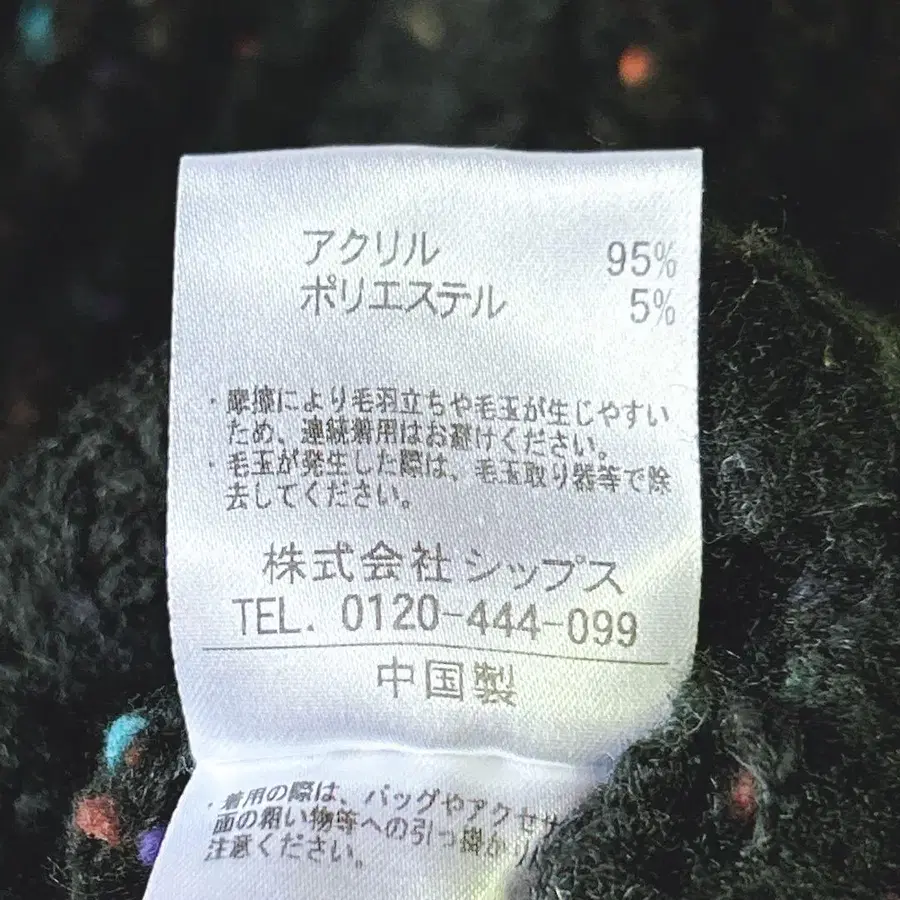 アクリル 95%
ポリエステル 5%
・摩擦により毛羽立ちや毛玉が生じやすい
ため、連続着用はお避けください。
・毛玉が発生した際は、毛玉取り器等で除
去してください。
株式会社 シップス
TEL. 0120-444-099
中国製
・着用の際は、バッグやアクセサ
面の粗い物等への引っ掛か
注意ください。